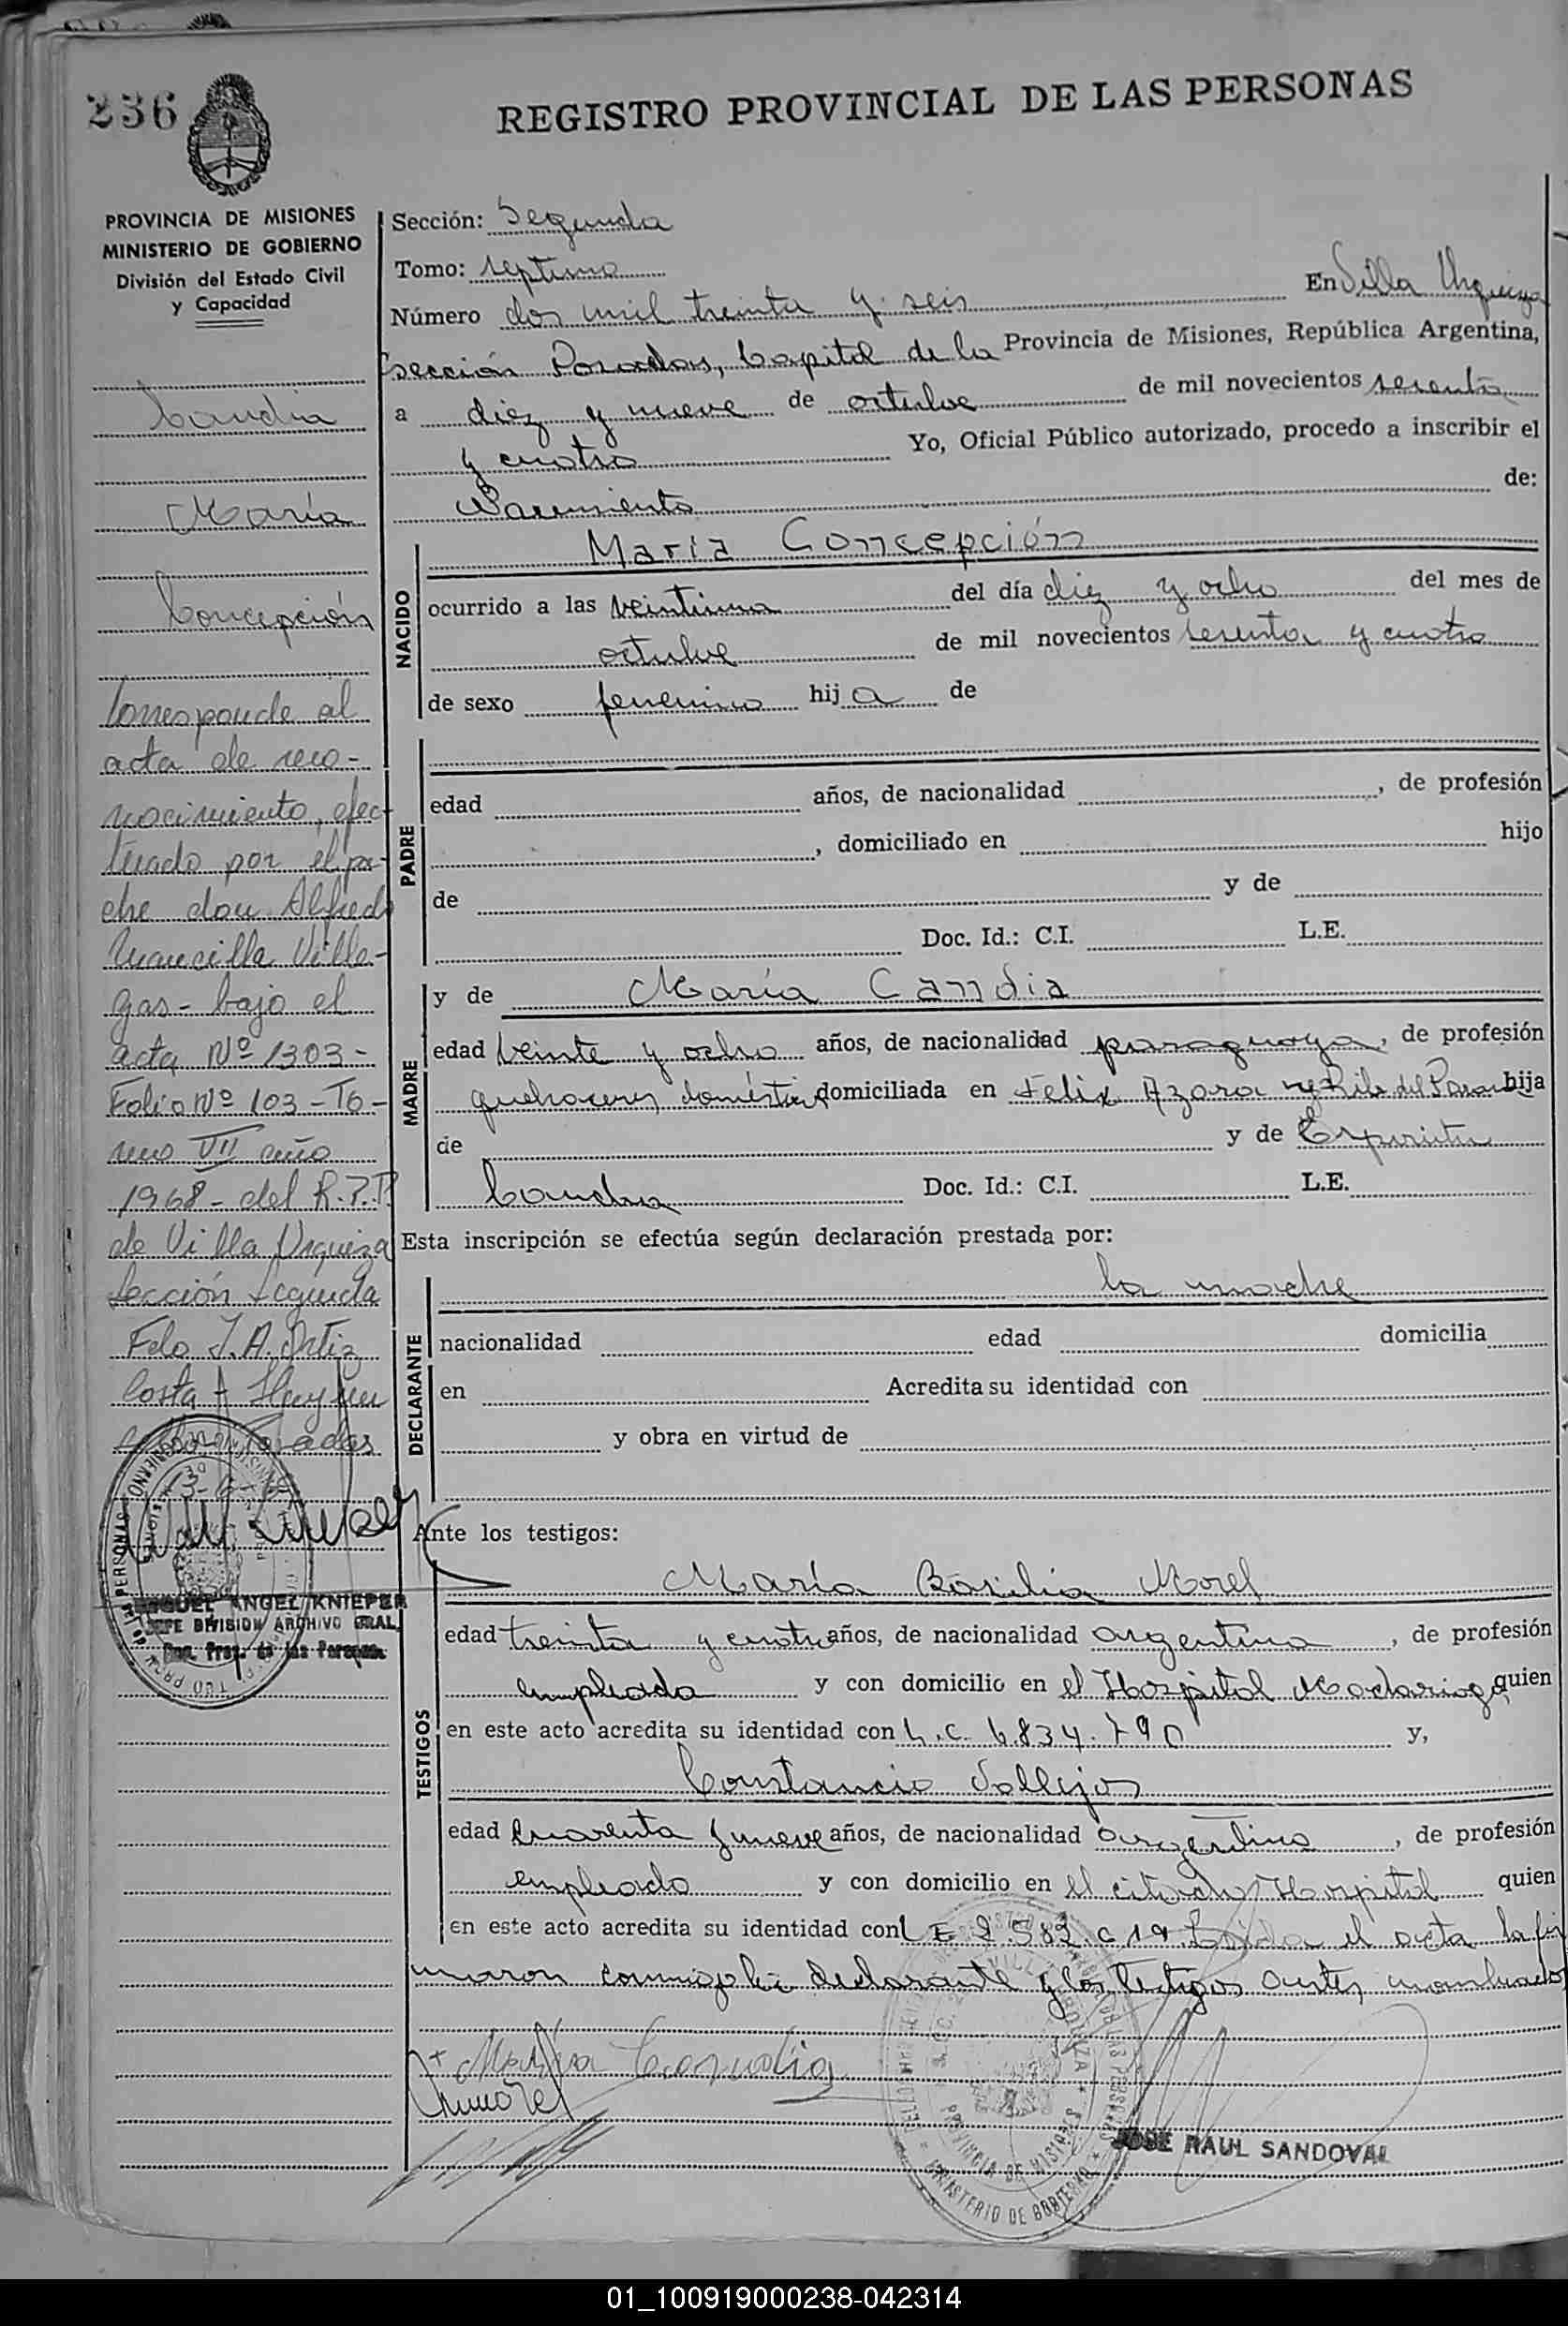 236
REGISTRO PROVINCIAL DE LAS PERSONAS
PROVINCIA DE MISIONES
MINISTERIO DE GOBIERNO
División del Estado Civil
y Capacidad
Candia
María
Concepción
Corresponde al
acta de reco-
nocimiento, efec-
tuado por el pa-
dre don Alfredo
Mancilla Ville-
gas - bajo el
acta Nº 1303 -
Folio Nº 103 - To-
mo VII año
1968 - del R.P.P.
de Villa Urquiza
Sección Segunda
Fdo J. A. Ortiz
Costa
Posadas
MIGUEL ANGEL KNIEPER
JEFE DIVISION ARCHIVO GRAL.
Reg. Prov. de las Personas
Sección: Segunda
Tomo: septimo
Número dos mil treinta y seis En Villa Urquiza
Sección Posadas, Capital de la Provincia de Misiones, República Argentina,
a diez y nueve de octubre de mil novecientos sesenta
y cuatro Yo, Oficial Público autorizado, procedo a inscribir el
Nacimiento de:
NACIDO
Maria Concepción
ocurrido a las veintiuna del día diez y ocho del mes de
octubre de mil novecientos sesenta y cuatro
de sexo femenino hija de
PADRE
edad años, de nacionalidad , de profesión
, domiciliado en hijo
de y de
Doc. Id.: C.I. L.E.
MADRE
y de María Candia
edad veinte y ocho años, de nacionalidad paraguaya, de profesión
quehaceres domésticos domiciliada en Felix Azara y Rib. del Paraná hija
de y de Espirita
Candia Doc. Id.: C.I. L.E.
Esta inscripción se efectúa según declaración prestada por:
DECLARANTE
la madre
nacionalidad edad domicilia
en Acredita su identidad con
y obra en virtud de
Ante los testigos:
TESTIGOS
María Basilia Morel
edad treinta y cuatro años, de nacionalidad argentina, de profesión
empleada y con domicilio en el Hospital Madariaga quien
en este acto acredita su identidad con L.C. 6.834.790 y,
Constancio Vallejos
edad cuarenta y nueve años, de nacionalidad argentino, de profesión
empleado y con domicilio en el citado Hospital quien
en este acto acredita su identidad con L E 2 582 019. Leida el acta la fir
maron conmigo la declarante y los testigos antes nombrados
María Candia
Mmorel
JOSE RAUL SANDOVAL
01_100919000238-042314